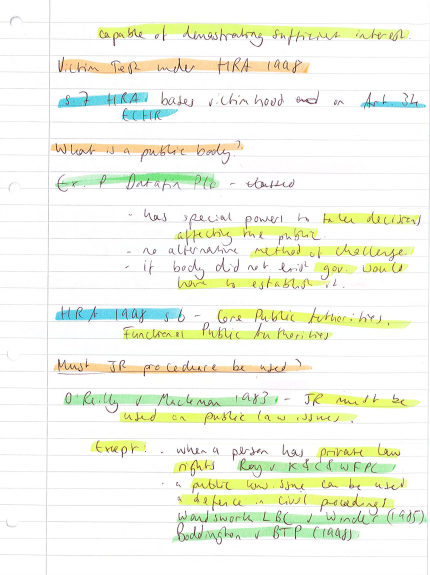 capable of demostrating sufficient interest.
Victim Test under HRA 1998
s 7 HRA bases victimhood on Art 34
ECHR
What is a public body?
Ex. P Datafin Plc -
- has special powers to take decisions
affecting the public.
- no alternative method of challenge
- if body did not exist gov. would
have to establish it.
HRA 1998 s 6 - Core Public Authorities,
Functional Public Authorities
Must JR procedure be used?
O'Reilly v Mackman 1983 - JR must be
used on public law issues.
Except: . when a person has private law
rights Roy v K & C & W FPC
. a public law issue can be used
a defence in civil procedings
Wandswork LBC v Winder (1985)
Boddington v BTP (1998)